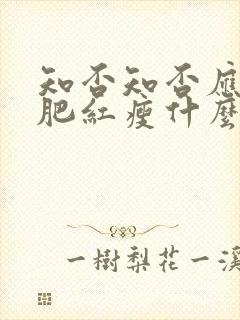 知否知否應
肥紅瘦什麼
一樹梨花一溪